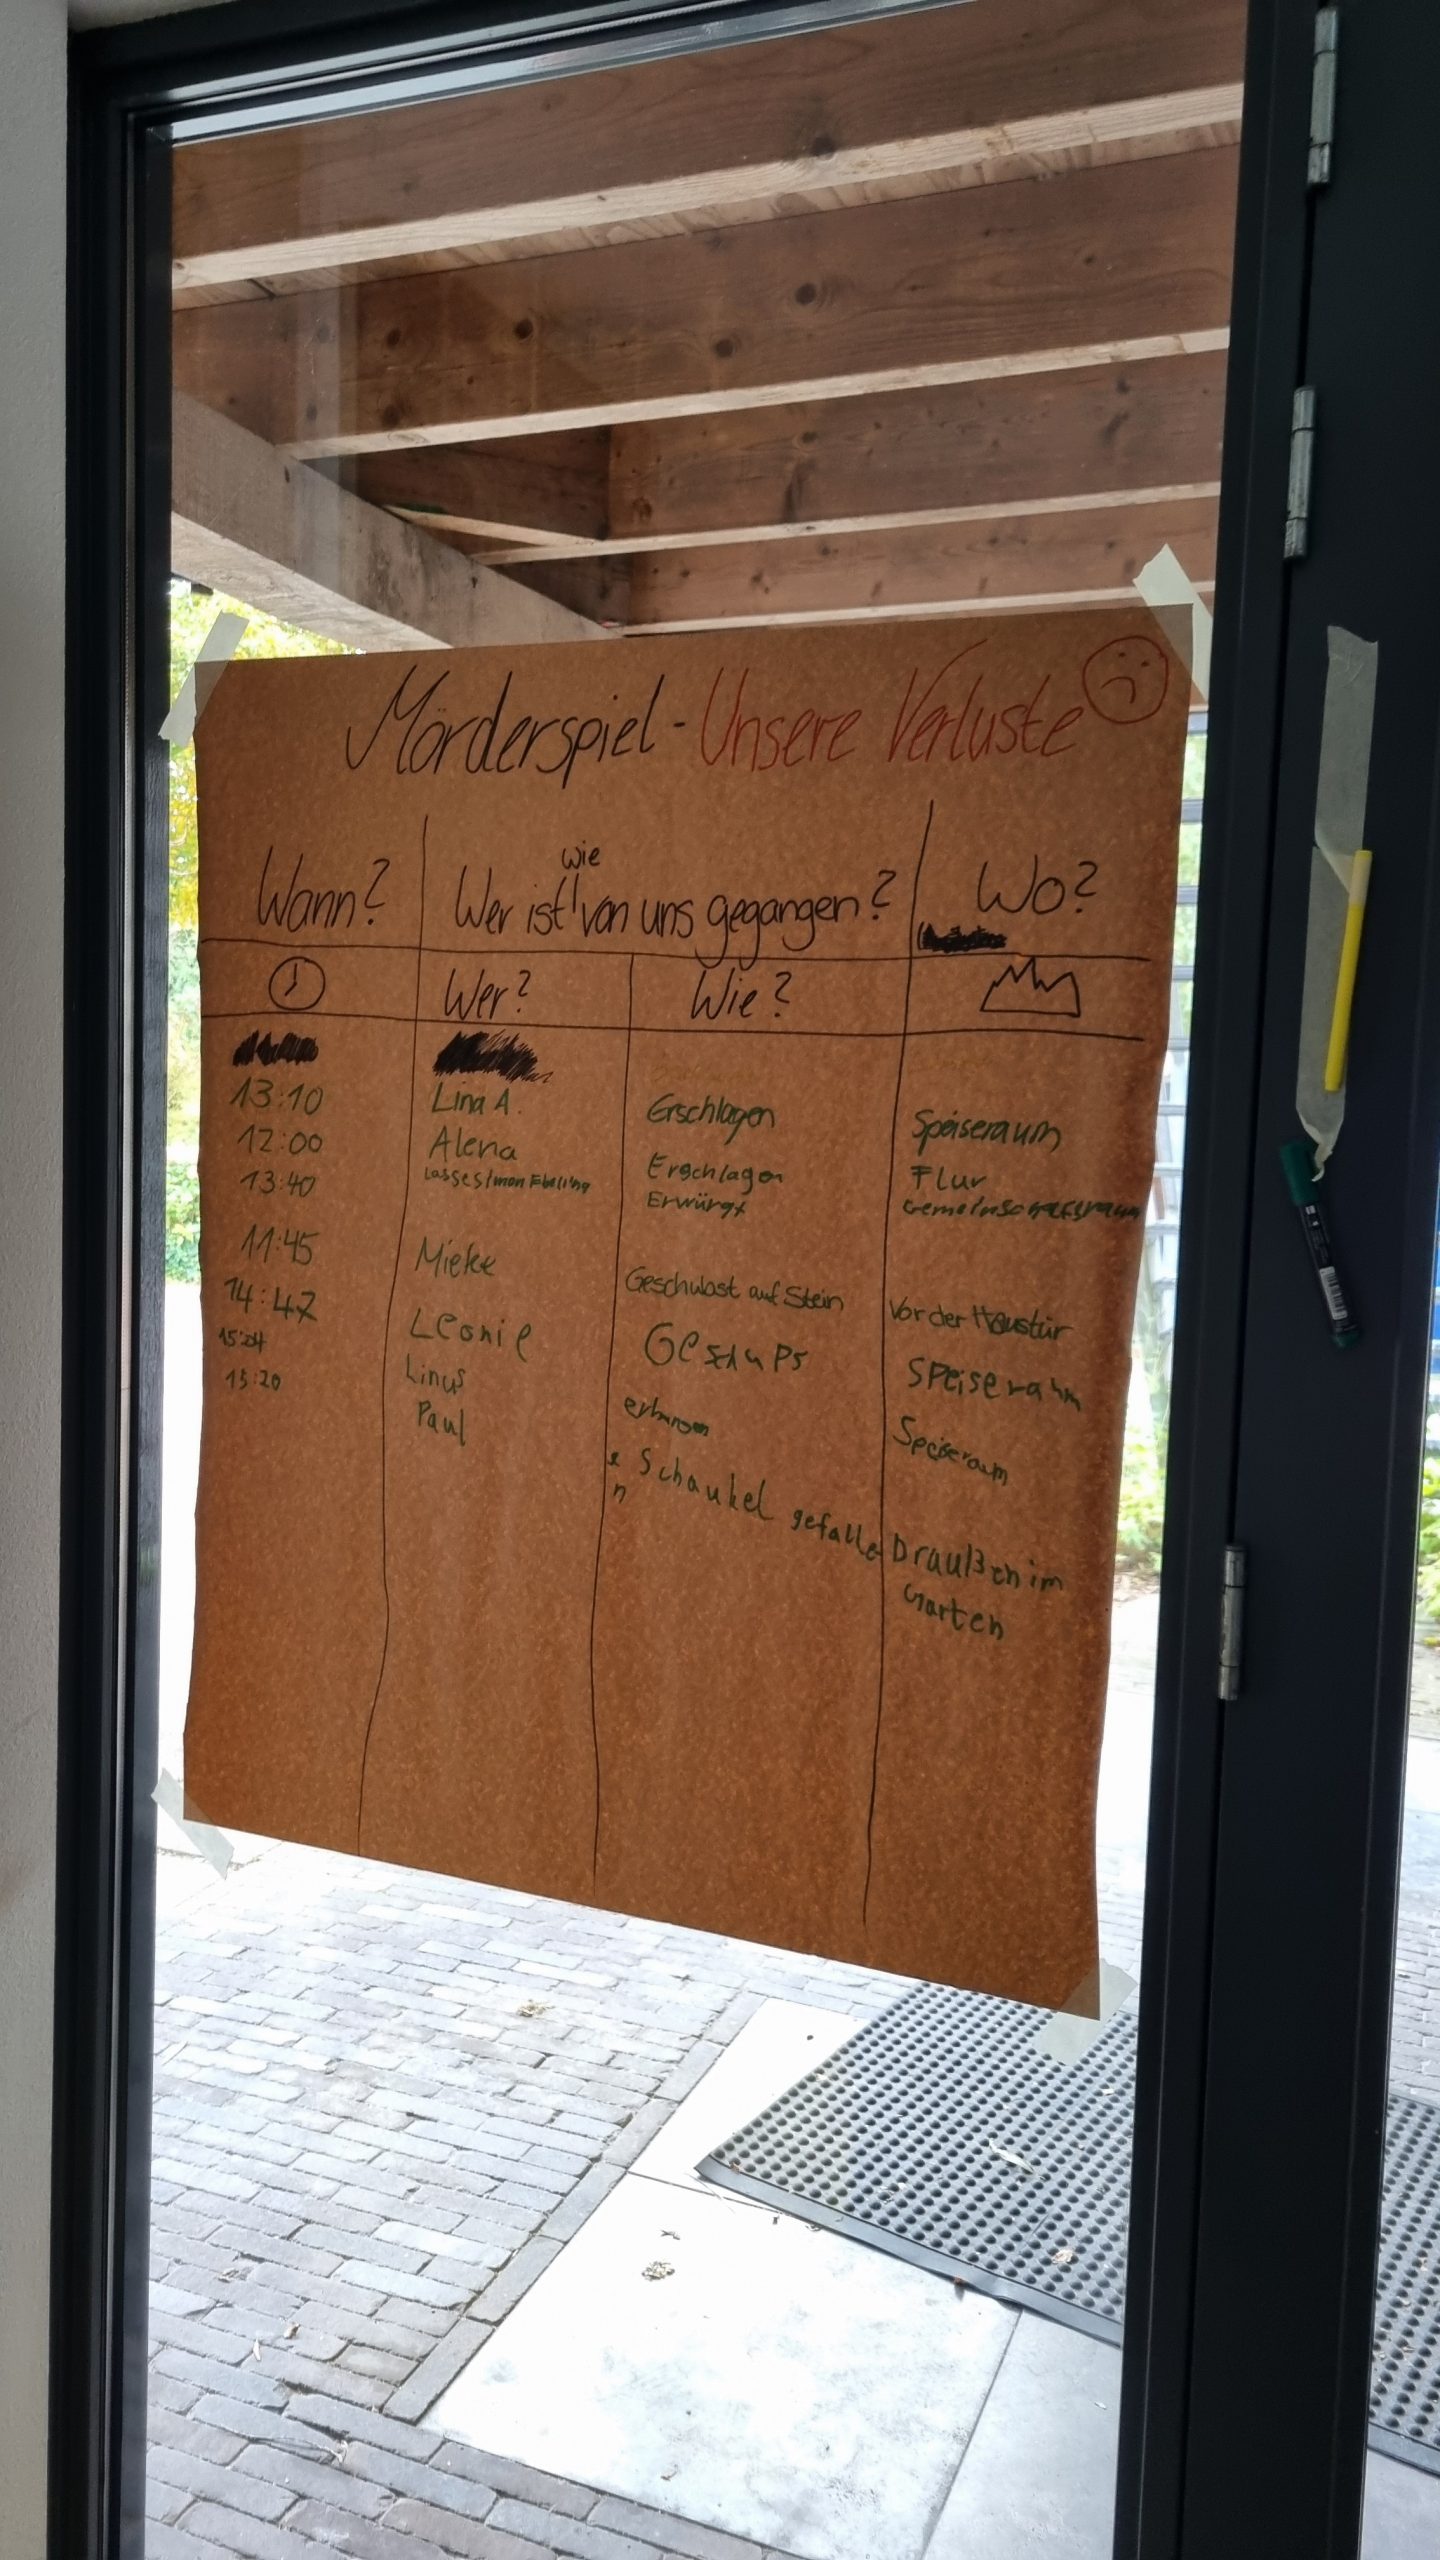 Mörderspiel - Unsere Verluste
Wann? Wer ist wie von uns gegangen? Wo?
Wer? Wie?
13:10 Lina A. Erschlagen Speiseraum
12:00 Alena Erschlagen Flur
13:40 Erwürgt Gemeinschaftsraum
11:45 Mieke Geschubst auf Stein Vor der Haustür
14:47 Leonie
15:24 Linus Speiseraum
15:20 Paul Schaukel gefallen Draußen im
Garten